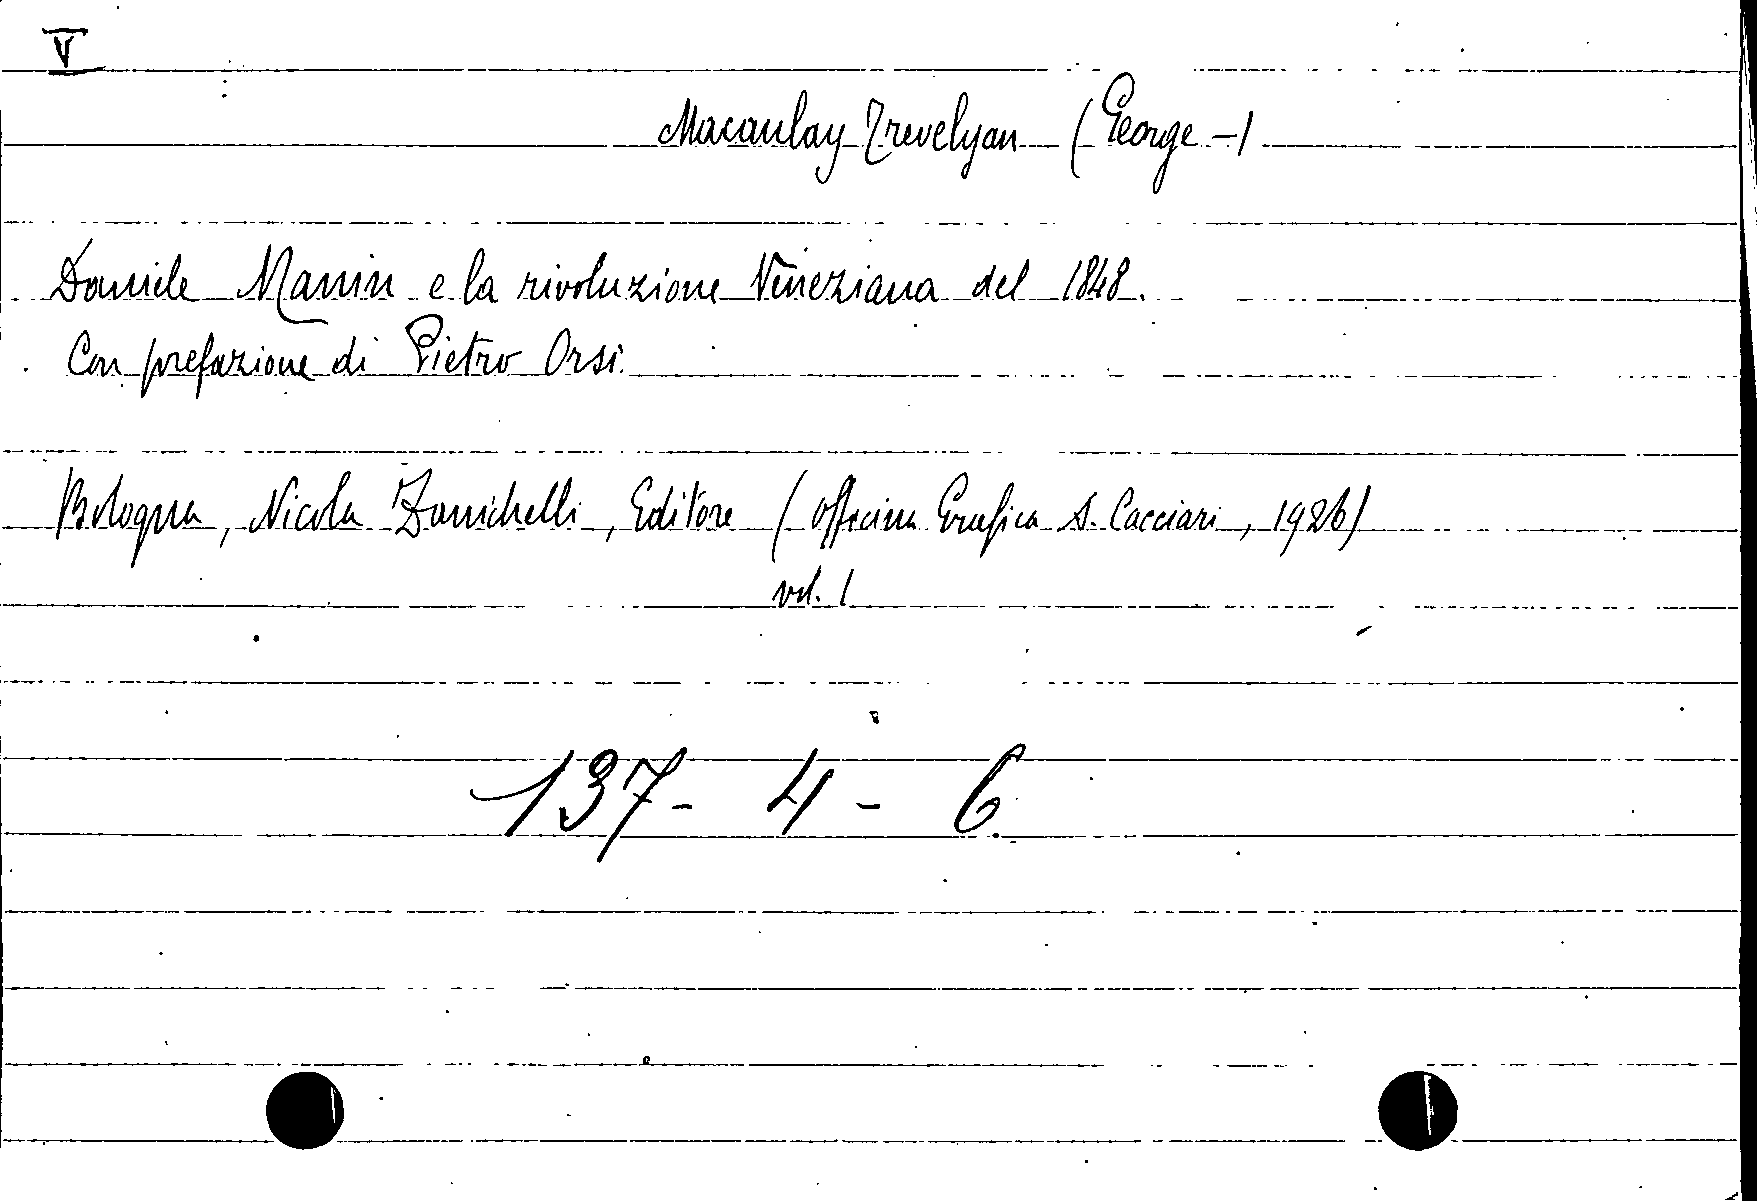 V
Macaulay Trevelyan (George -)
Daniele Manin e la rivoluzione Veneziana del 1848.
Con prefazione di Pietro Orsi.
Bologna, Nicola Zanichelli, Editore (Officina Grafica A. Cacciari, 1926)
vol. 1
137- 4 - 6.